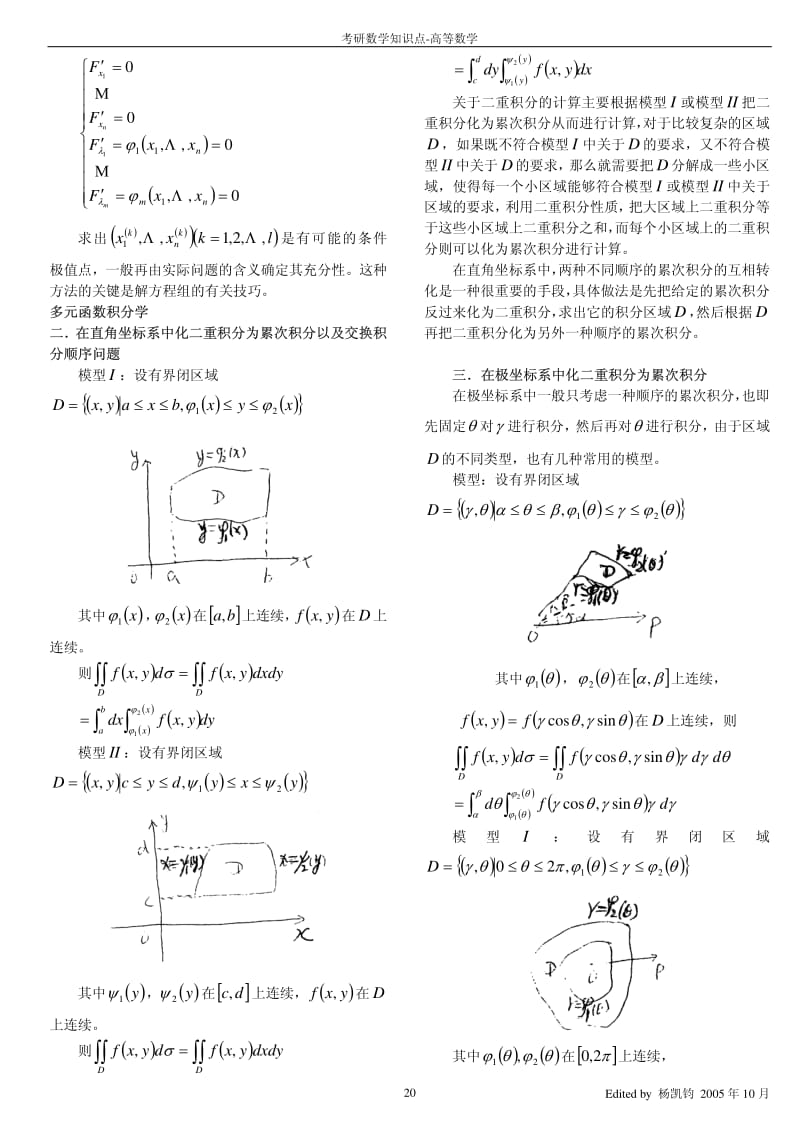 考研数学知识点-高等数学
F′x₁ = 0
M
F′xₙ = 0
F′λ₁ = φ₁(x₁,Λ , xₙ) = 0
M
F′λₘ = φₘ(x₁,Λ , xₙ) = 0
求出 (x₁^(k),Λ , xₙ^(k))(k = 1,2,Λ , l) 是有可能的条件
极值点，一般再由实际问题的含义确定其充分性。这种
方法的关键是解方程组的有关技巧。
多元函数积分学
二．在直角坐标系中化二重积分为累次积分以及交换积
分顺序问题
模型 I：设有界闭区域
D = {(x, y)|a ≤ x ≤ b, φ₁(x) ≤ y ≤ φ₂(x)}
y
y=φ₂(x)
D
y=φ₁(x)
0 a b x
其中 φ₁(x)，φ₂(x) 在 [a,b] 上连续，f(x, y) 在 D 上
连续。
则 ∬_D f(x, y)dσ = ∬_D f(x, y)dxdy
= ∫_a^b dx ∫_{φ₁(x)}^{φ₂(x)} f(x, y)dy
模型 II：设有界闭区域
D = {(x, y)|c ≤ y ≤ d, ψ₁(y) ≤ x ≤ ψ₂(y)}
y
d
x=ψ₁(y) D x=ψ₂(y)
c
0 x
其中 ψ₁(y)，ψ₂(y) 在 [c,d] 上连续，f(x, y) 在 D
上连续。
则 ∬_D f(x, y)dσ = ∬_D f(x, y)dxdy
= ∫_c^d dy ∫_{ψ₁(y)}^{ψ₂(y)} f(x, y)dx
关于二重积分的计算主要根据模型 I 或模型 II 把二
重积分化为累次积分从而进行计算，对于比较复杂的区域
D，如果既不符合模型 I 中关于 D 的要求，又不符合模
型 II 中关于 D 的要求，那么就需要把 D 分解成一些小区
域，使得每一个小区域能够符合模型 I 或模型 II 中关于
区域的要求，利用二重积分性质，把大区域上二重积分等
于这些小区域上二重积分之和，而每个小区域上的二重积
分则可以化为累次积分进行计算。
在直角坐标系中，两种不同顺序的累次积分的互相转
化是一种很重要的手段，具体做法是先把给定的累次积分
反过来化为二重积分，求出它的积分区域 D，然后根据 D
再把二重积分化为另外一种顺序的累次积分。
三．在极坐标系中化二重积分为累次积分
在极坐标系中一般只考虑一种顺序的累次积分，也即
先固定 θ 对 γ 进行积分，然后再对 θ 进行积分，由于区域
D 的不同类型，也有几种常用的模型。
模型：设有界闭区域
D = {(γ,θ)|α ≤ θ ≤ β, φ₁(θ) ≤ γ ≤ φ₂(θ)}
γ=φ₂(θ)
D
γ=φ₁(θ)
β
0 P
其中 φ₁(θ)，φ₂(θ) 在 [α, β] 上连续，
f(x, y) = f(γ cos θ, γ sin θ) 在 D 上连续，则
∬_D f(x, y)dσ = ∬_D f(γ cos θ, γ sin θ)γ dγ dθ
= ∫_α^β dθ ∫_{φ₁(θ)}^{φ₂(θ)} f(γ cos θ, γ sin θ)γ dγ
模 型 I ： 设 有 界 闭 区 域
D = {(γ,θ)|0 ≤ θ ≤ 2π, φ₁(θ) ≤ γ ≤ φ₂(θ)}
γ=φ₂(θ)
D 0 P
γ=φ₁(θ)
其中 φ₁(θ), φ₂(θ) 在 [0,2π] 上连续，
20 Edited by 杨凯钧 2005 年 10 月